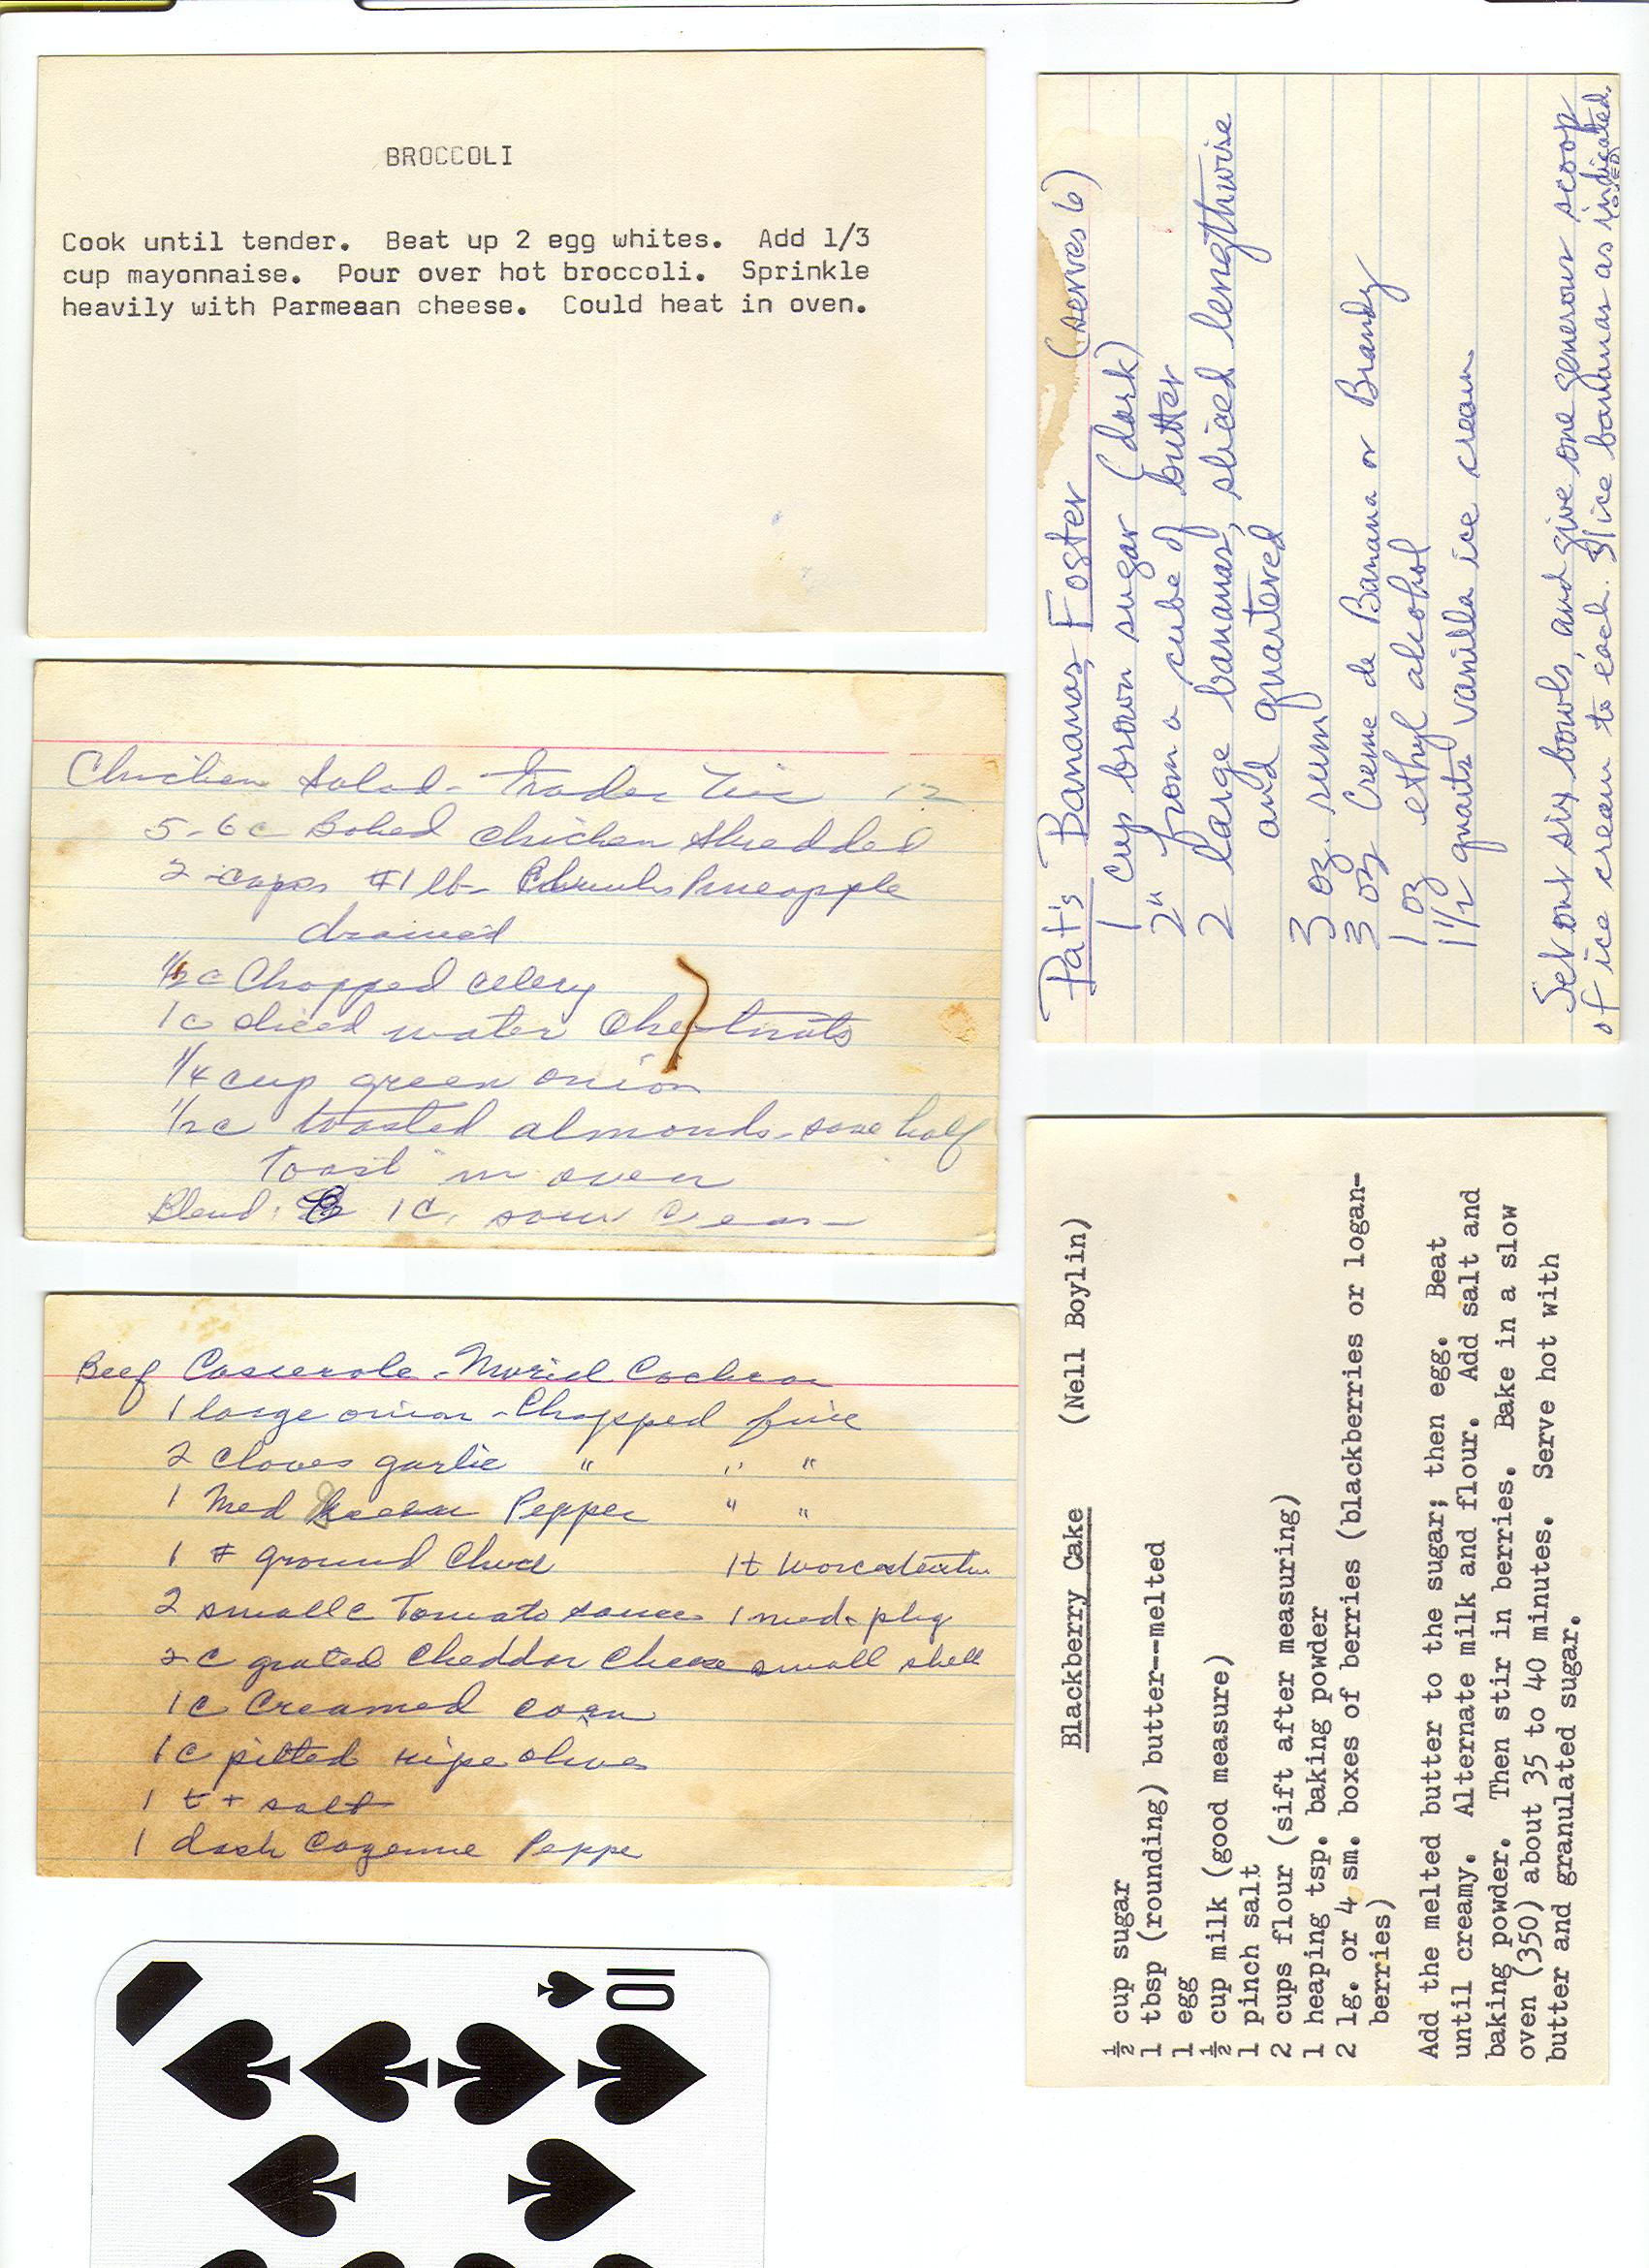 BROCCOLI
Cook until tender. Beat up 2 egg whites. Add 1/3
cup mayonnaise. Pour over hot broccoli. Sprinkle
heavily with Parmesan cheese. Could heat in oven.
Chicken Salad - Trader Vic 12
5-6 c Boked chicken Shredded
2 #1 lb Chunks Pineapple
drained
1/2 c Chopped celery
1 c diced water Chestnuts
1/4 cup green onion
1/2 c toasted almonds - save half
toast in oven
Blend: 1 C. sour Cream
Beef Casserole - Muriel Cochran
1 large onion - Chopped fine
2 Cloves garlic " " "
1 Med green Pepper " "
1 # ground Chuck 1 t Worcestershire
2 small c Tomato sauce 1 med. pkg
2 c grated Cheddar Cheese small shell
1 c Creamed corn
1 c pitted ripe olives
1 t + salt
1 dash Cayenne Peppe
10
Pat's Bananas Foster (serves 6)
1 cup brown sugar (dark)
2" from a cube of butter
2 large bananas, sliced lengthwise
and quartered
3 oz. rum
3 oz Creme de Banana or Brandy
1 oz ethyl alcohol
1 1/2 quarts vanilla ice cream
Set out six bowls, and give one generous scoop
of ice cream to each. Slice bananas as indicated.
Blackberry Cake (Nell Boylin)
½ cup sugar
1 tbsp (rounding) butter--melted
1 egg
½ cup milk (good measure)
1 pinch salt
2 cups flour (sift after measuring)
1 heaping tsp. baking powder
2 lg. or 4 sm. boxes of berries (blackberries or logan-
berries)
Add the melted butter to the sugar; then egg. Beat
until creamy. Alternate milk and flour. Add salt and
baking powder. Then stir in berries. Bake in a slow
oven (350) about 35 to 40 minutes. Serve hot with
butter and granulated sugar.